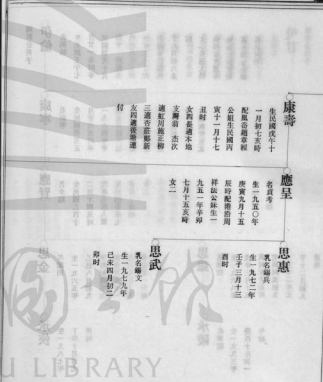 康壽
生民國戊午十
一月初七亥時
配鳳岳趙章程
公姐生民國丙
寅十一月十七
丑时
女四長適本地
支灣前 杰次
適虹川施正柳
三適杏莊鄭新
友四適後塘連
付
應呈
名貞考
生一九五〇年
庚寅九月十五
辰時配港沿周
祥法公妹生一
九五一年辛卯
七月十五亥時
女二
思惠
乳名錫兵
生一九七二年
壬子三月十三
酉时
思武
乳名錫文
生一九七九年
己未四月初二
卯时
U LIBRARY